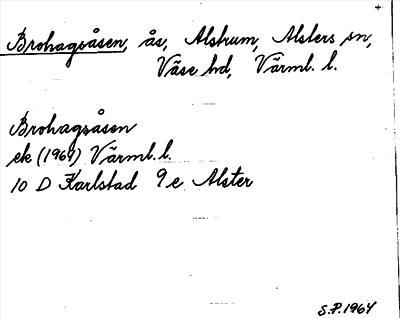 Brohagsåsen, ås, Alstrum, Alsters sn,
Väse hd, Värml. l.
Brohagsåsen
ek (1964) Värml. l.
10 D Karlstad 9 e Alster
S.P. 1964